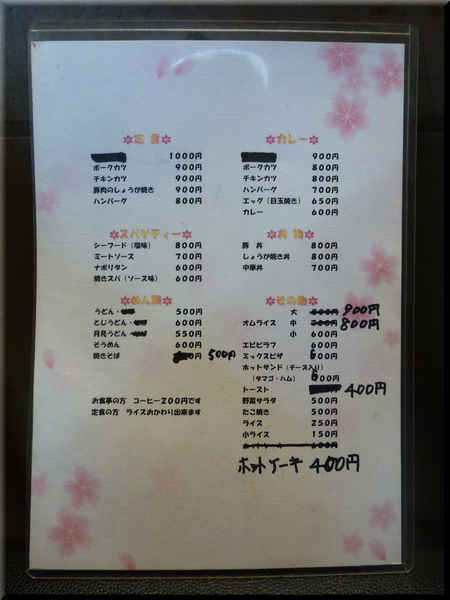 ✽定 食✽
1000円
ポークカツ 900円
チキンカツ 900円
豚肉のしょうが焼き 900円
ハンバーグ 800円
✽スパゲティー✽
シーフード（塩味） 800円
ミートソース 700円
ナポリタン 600円
焼きスパ（ソース味） 600円
✽めん類✽
うどん・ 500円
とじうどん・ 600円
月見うどん・ 550円
そうめん 600円
焼きそば 円 500円
お食事の方 コーヒー200円です
定食の方 ライスおかわり出来ます
✽カレー✽
900円
ポークカツ 800円
チキンカツ 800円
ハンバーグ 700円
エッグ（目玉焼き） 650円
カレー 600円
✽丼 物✽
豚 丼 800円
しょうが焼き丼 800円
中華丼 700円
✽その他✽
大 900円
オムライス 中 800円
小 600円
エビピラフ 600円
ミックスピザ 600円
ホットサンド（チーズ入り）
（タマゴ・ハム） 600円
トースト 400円
野菜サラダ 500円
たこ焼き 500円
ライス 250円
小ライス 150円
ホットケーキ 400円